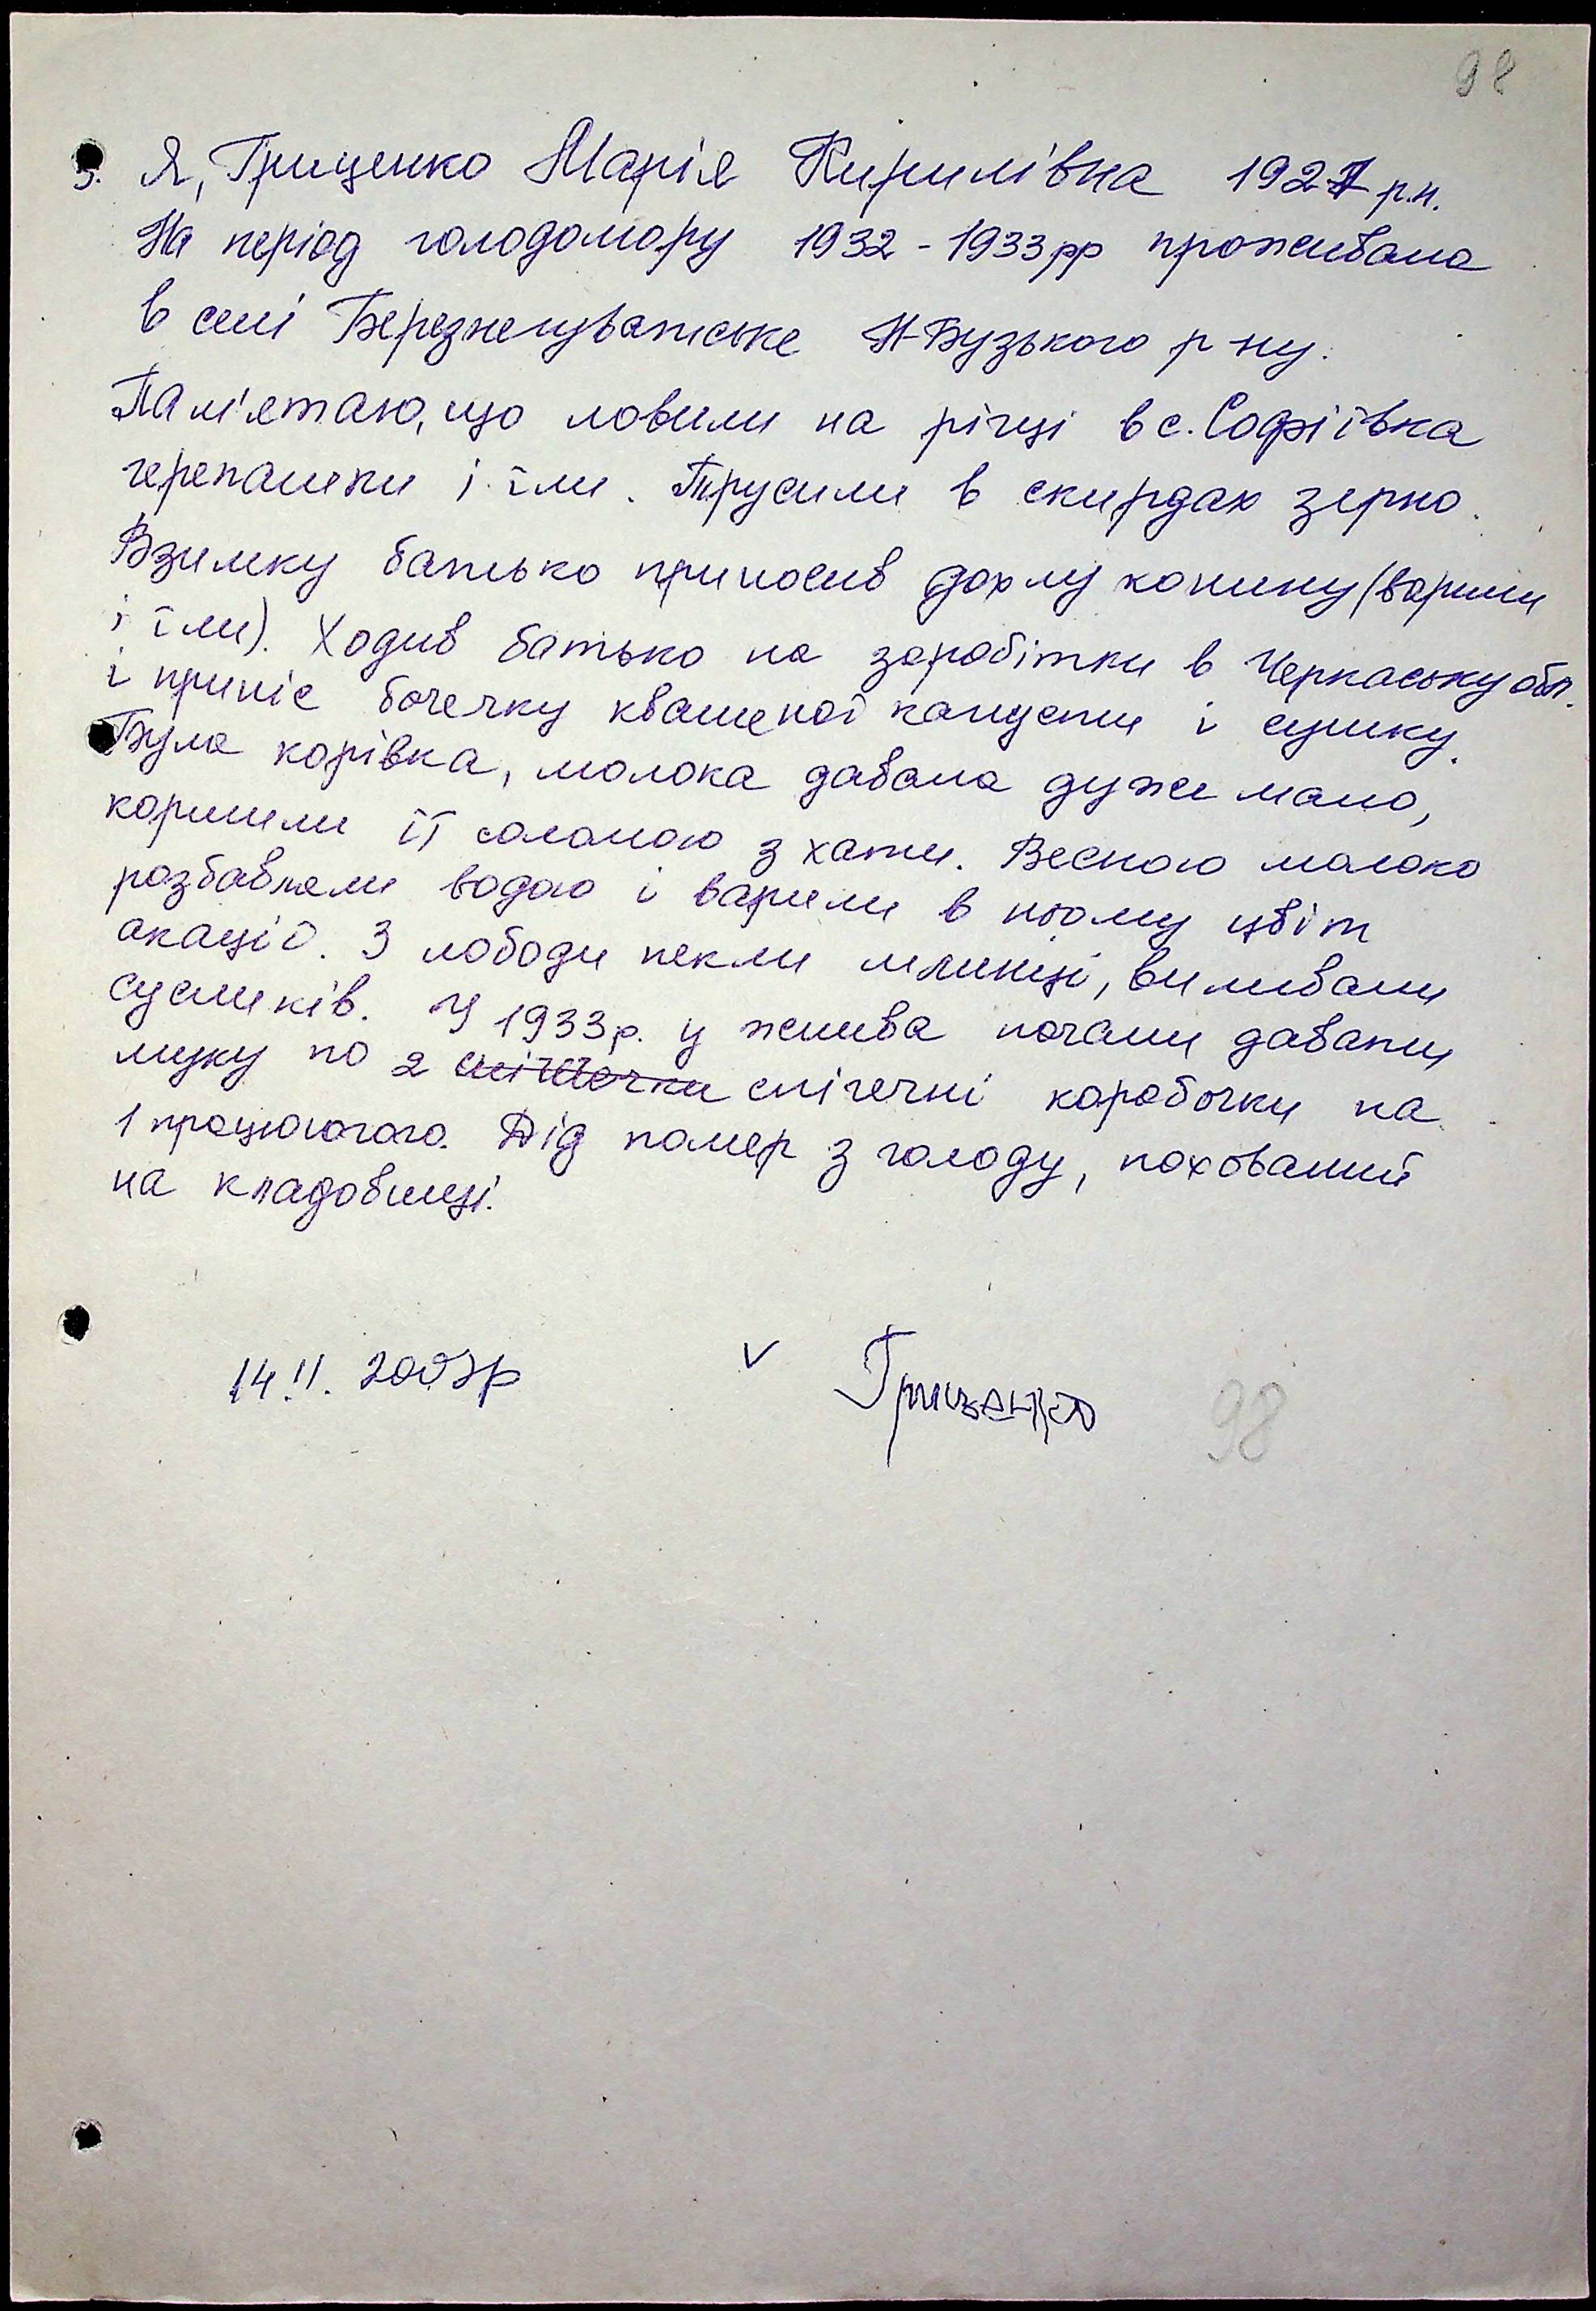 98
5. Я, Гриценко Марія Кирилівна 1927 р.н.
На період голодомору 1932-1933рр проживала
в селі Березнегуватське Н-Бузького р-ну.
Пам'ятаю, що ловили на річці в с. Софіївка
черепашки і їли. Трусили в скирдах зерно.
Взимку батько приносив дохлу конину (варили
і їли). Ходив батько на заробітки в Черкаську обл.
і приніс бочечку квашеної капусти і сушку.
Була корівка, молока давала дуже мало,
кормили її соломою з хати. Весною молоко
розбавляли водою і варили в ньому цвіт
акації. З лободи пекли млинці, виливали
сусликів. У 1933р. у жнива почали давати
муку по 2 спічечні коробочки на
1 працюючого. Дід помер з голоду, похований
на кладовищі.
14.11. 2007р V Гриценко
98